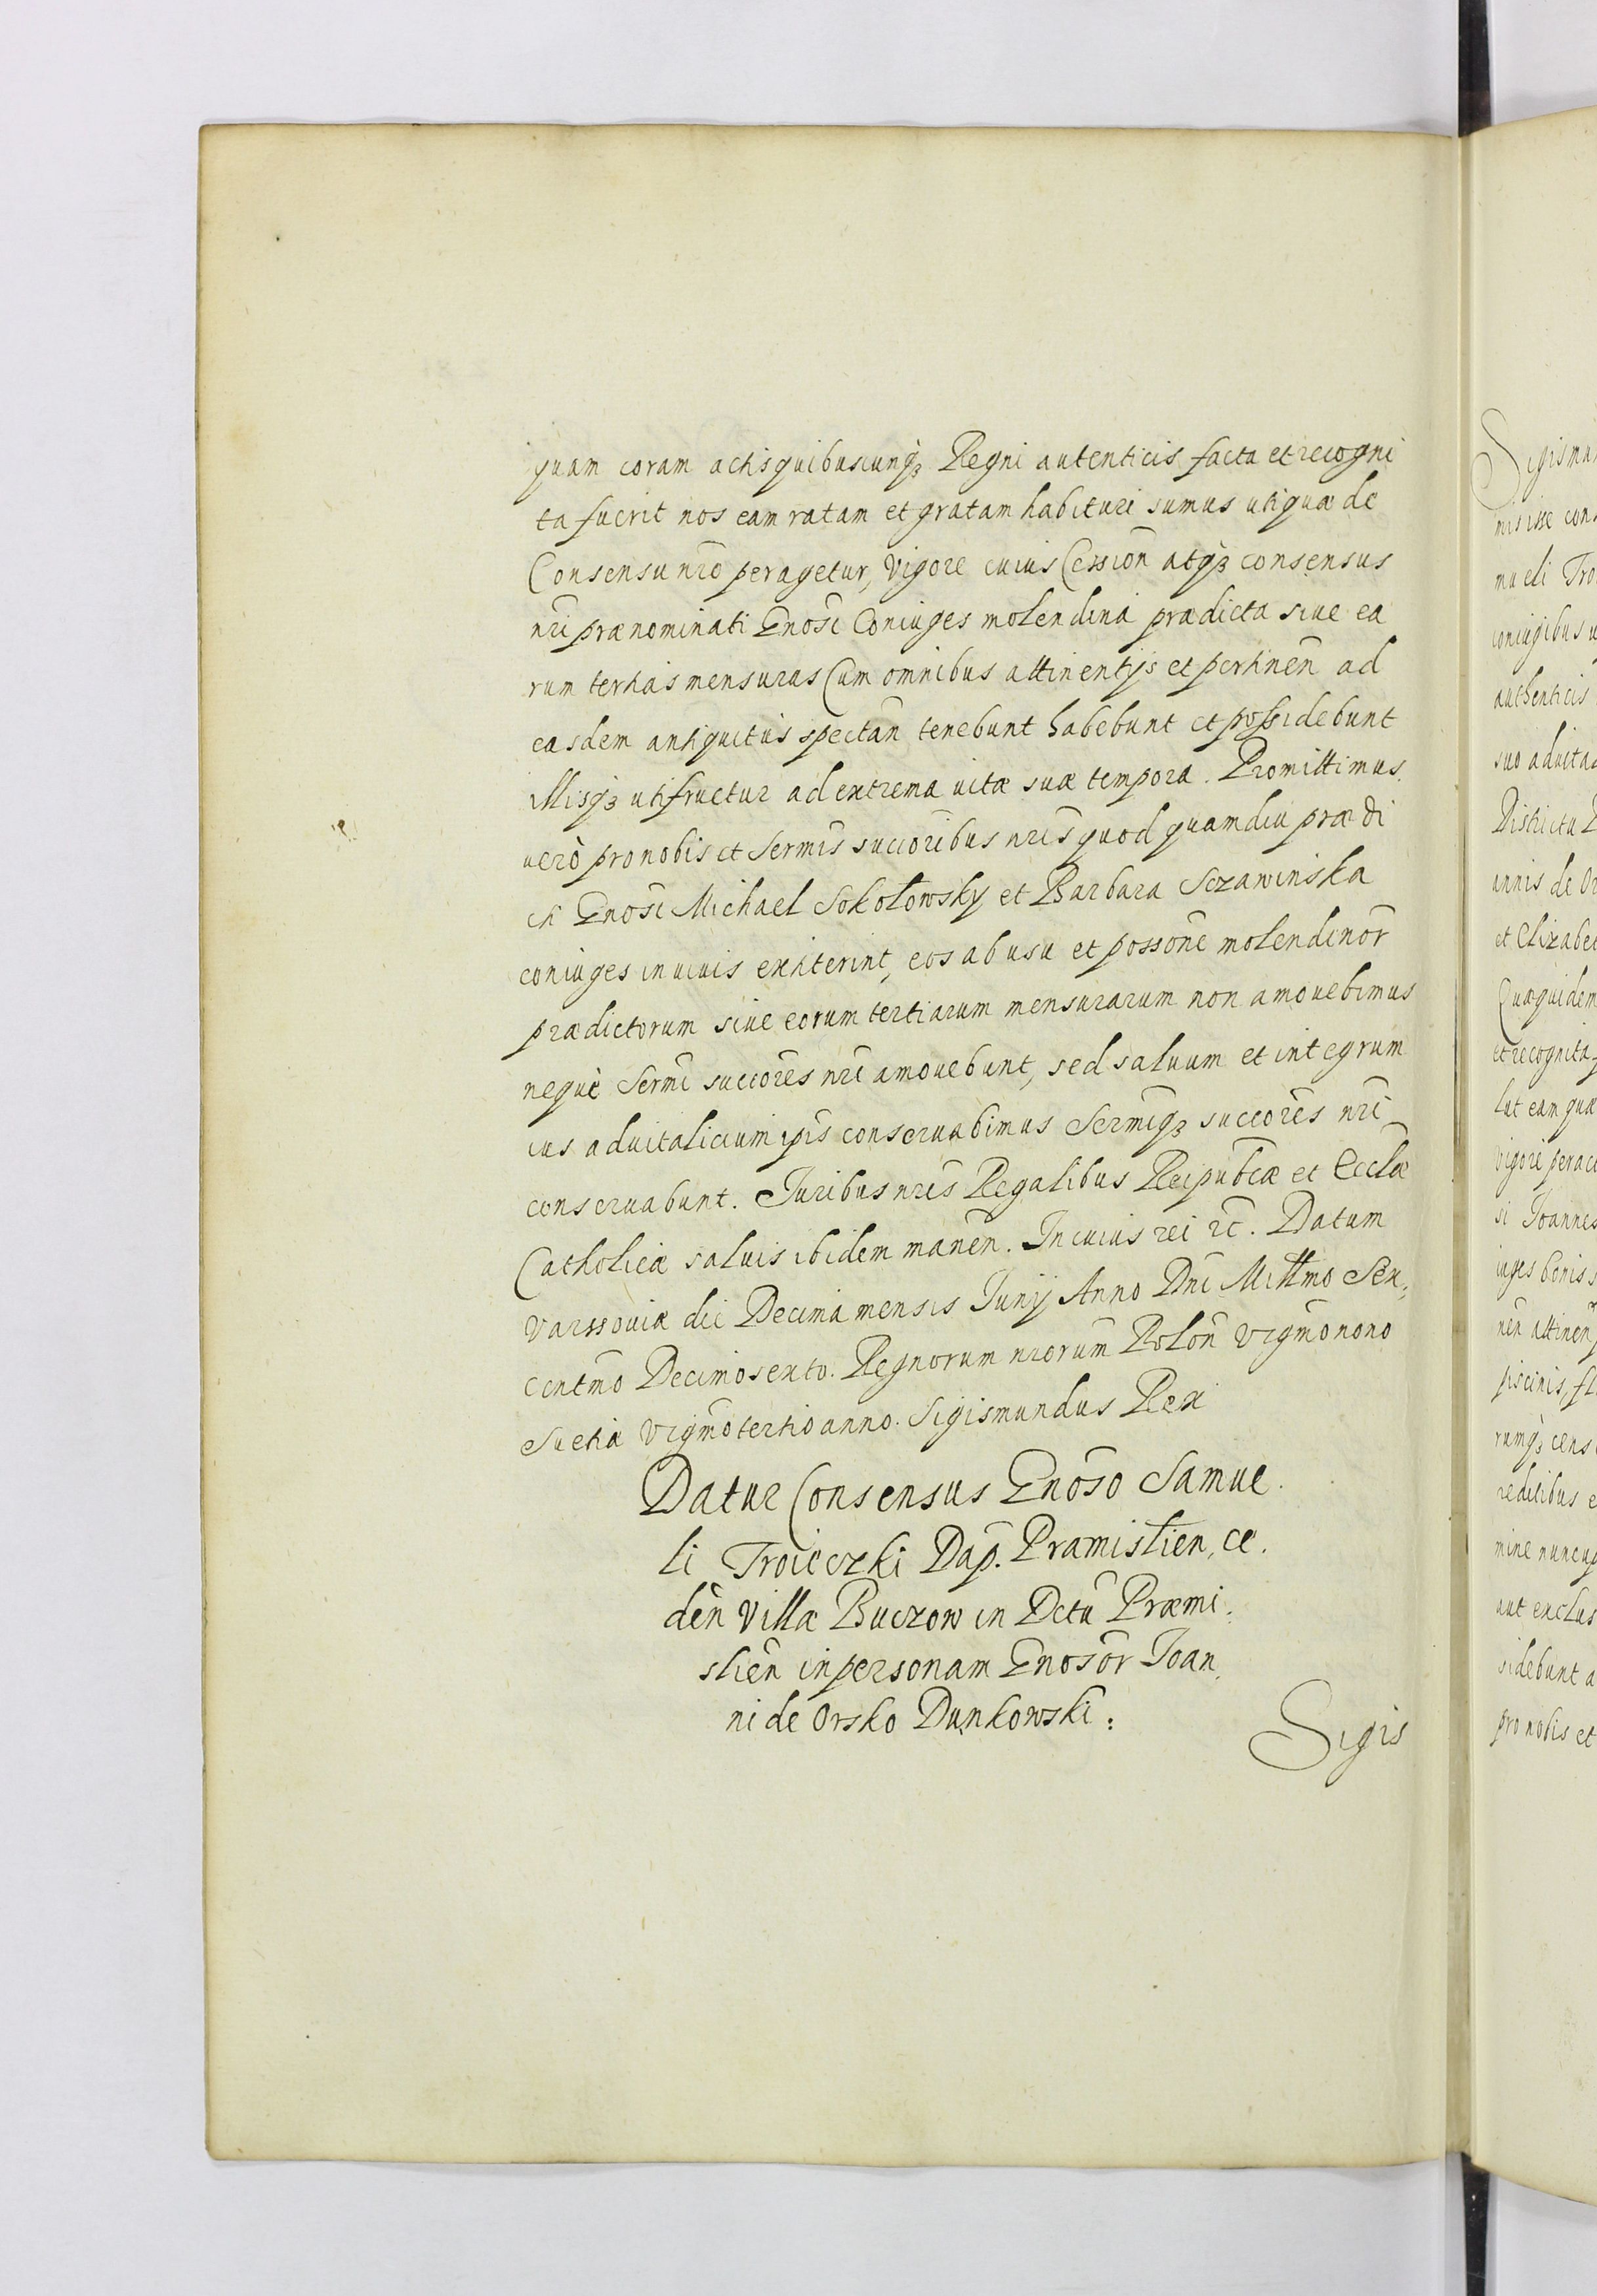 quam coram actis quibuscunqꝫ Regni autenticis facta et recogni
ta fuerit nos eam ratam et gratam habituri sumus uti quæ de
Consensu nr̃o peragetur, Vigore cuius Cession̄ atqꝫ consensus
nr̃i prænominati Gnōsi Coniuges molendina prædicta siue ea
rum tertias mensuras Cum omnibus attinentijs et pertinen̄ ad
easdem antiquitùs spectan̄ tenebunt habebunt et possidebunt
illisqꝫ utifructur ad extrema uitæ suæ tempora. Promittimus
uerò pro nobis et Sermīs succōribus nr̃is quod quamdiu præ di
cti Gnōsi Michael Sokołowsky et Barbara Sczawinska
coniuges in uiuis extiterint, eos ab usu et possōne molendinōr
prædictorum siue eorum tertiarum mensurarum non amouebimus
nequè Sermī succōres nr̃i amouebunt, sed saluum et integrum
ius aduitalicium ipīs conseruabimus Sermīqꝫ succōres nr̃i
conseruabunt. Juribus nr̃is Regalibus Reipubc̄æ et Eccl̄æ
Catholicæ saluis ibidem manen̄. In cuius rei rc̄. Datum
Varssouiæ die Decima mensis Junij Anno Dnī Mill̄mo Sex,
centm̄o Decimosexto. Regnorum nr̃orum Polon̄ Vigm̄o nono
Suetiæ Vigm̄o tertio anno. Sigismundus Rex
Datur Consensus Gnōso Samue.
li Troieczki Dap̄. Præmislien, ce.
den̄ Villæ Buczow in Dctū Præmi.
slien̄ in personam Gnōsōr Joan,
ni de Orsko Dunkowski:
Sigis
Sigismu
misisse con
mueli Tro
coniugibus u
authenticis
suo aduita
Districtu
annis de Or
et Elizabe
Quæquidem
et recognita
lut eam quæ
Vigore perac
si Joannes
iuges bonis s
nen̄ attinen
piscinis, fl
rumqꝫ cens
reditibus e
mine nuncup
aut exclus
sidebunt a
pro nobis et